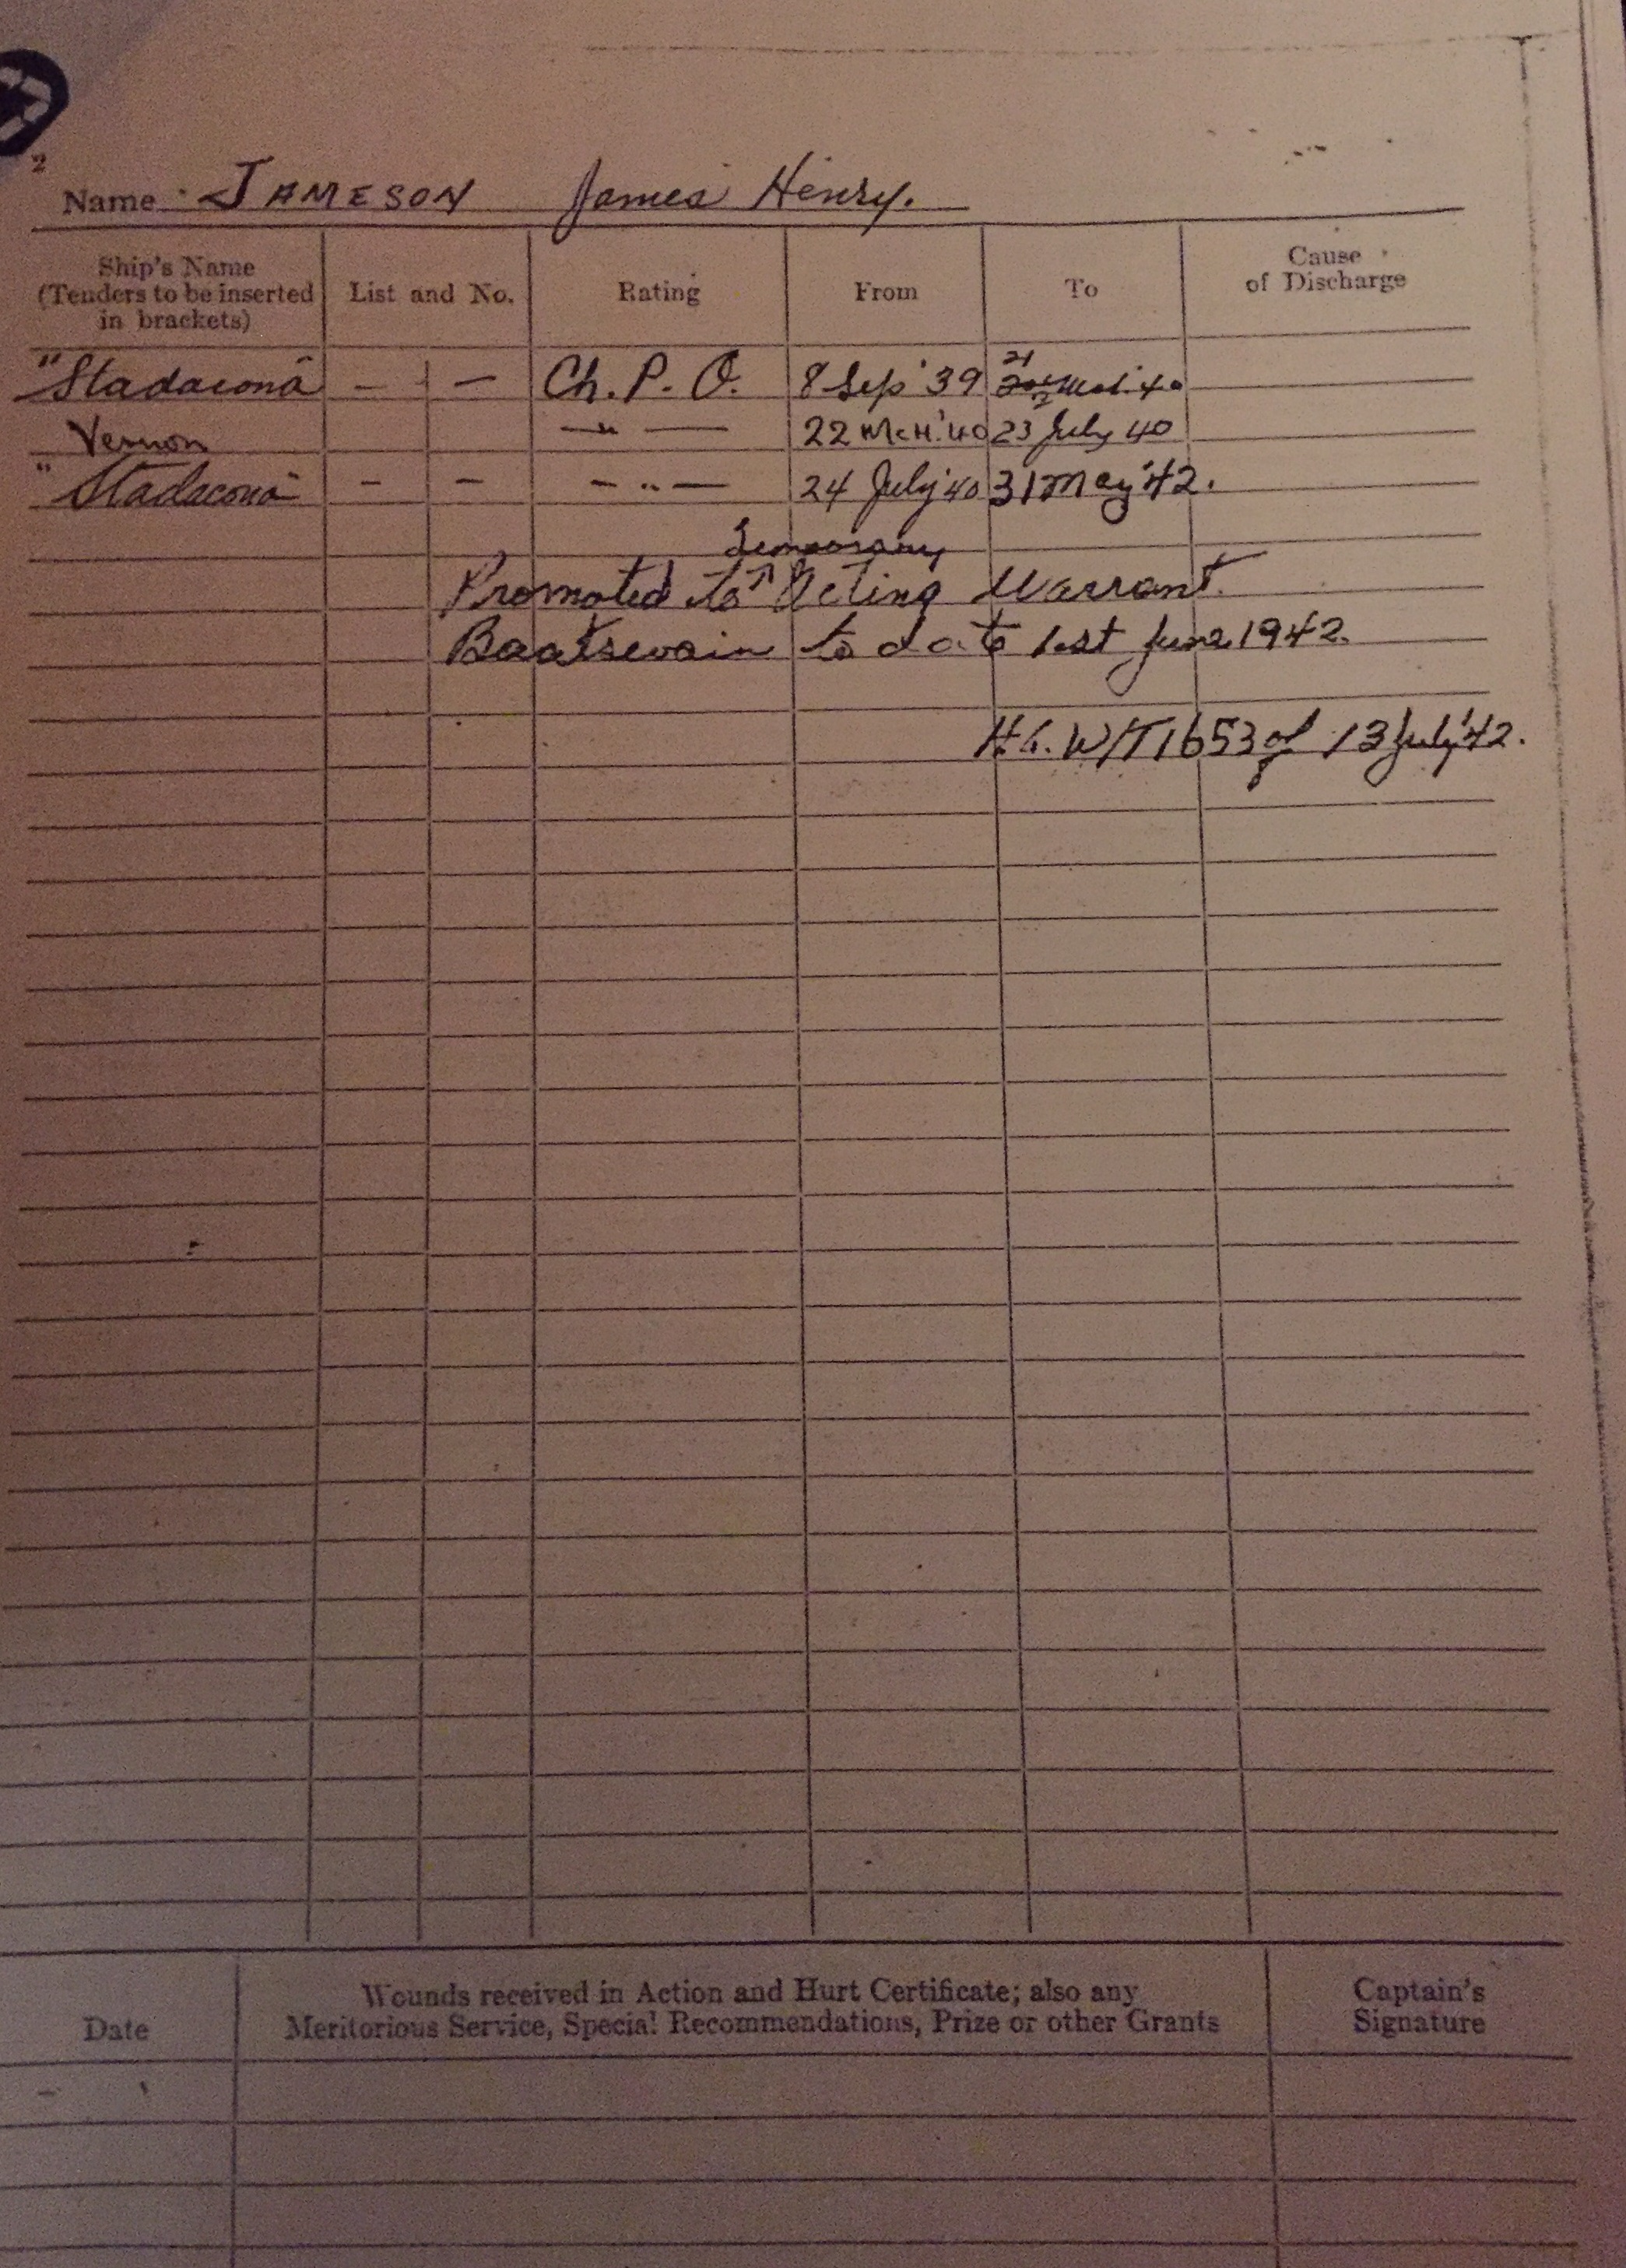 2
Name JAMESON James Henry.
Ship's Name
(Tenders to be inserted
in brackets)
List and No.
Rating
From
To
Cause
of Discharge
"Stadacona" - - Ch. P. O. 8 Sep '39 21 Mch '40
Vernon —"— 22 Mch '40 23 July 40
"Stadacona" - - —"— 24 July '40 31 May '42.
Temporary
Promoted to ↑ Acting Warrant
Boatswain to date 1st June 1942.
W/T 1653 of 13 July '42.
Date
Wounds received in Action and Hurt Certificate; also any
Meritorious Service, Special Recommendations, Prize or other Grants
Captain's
Signature